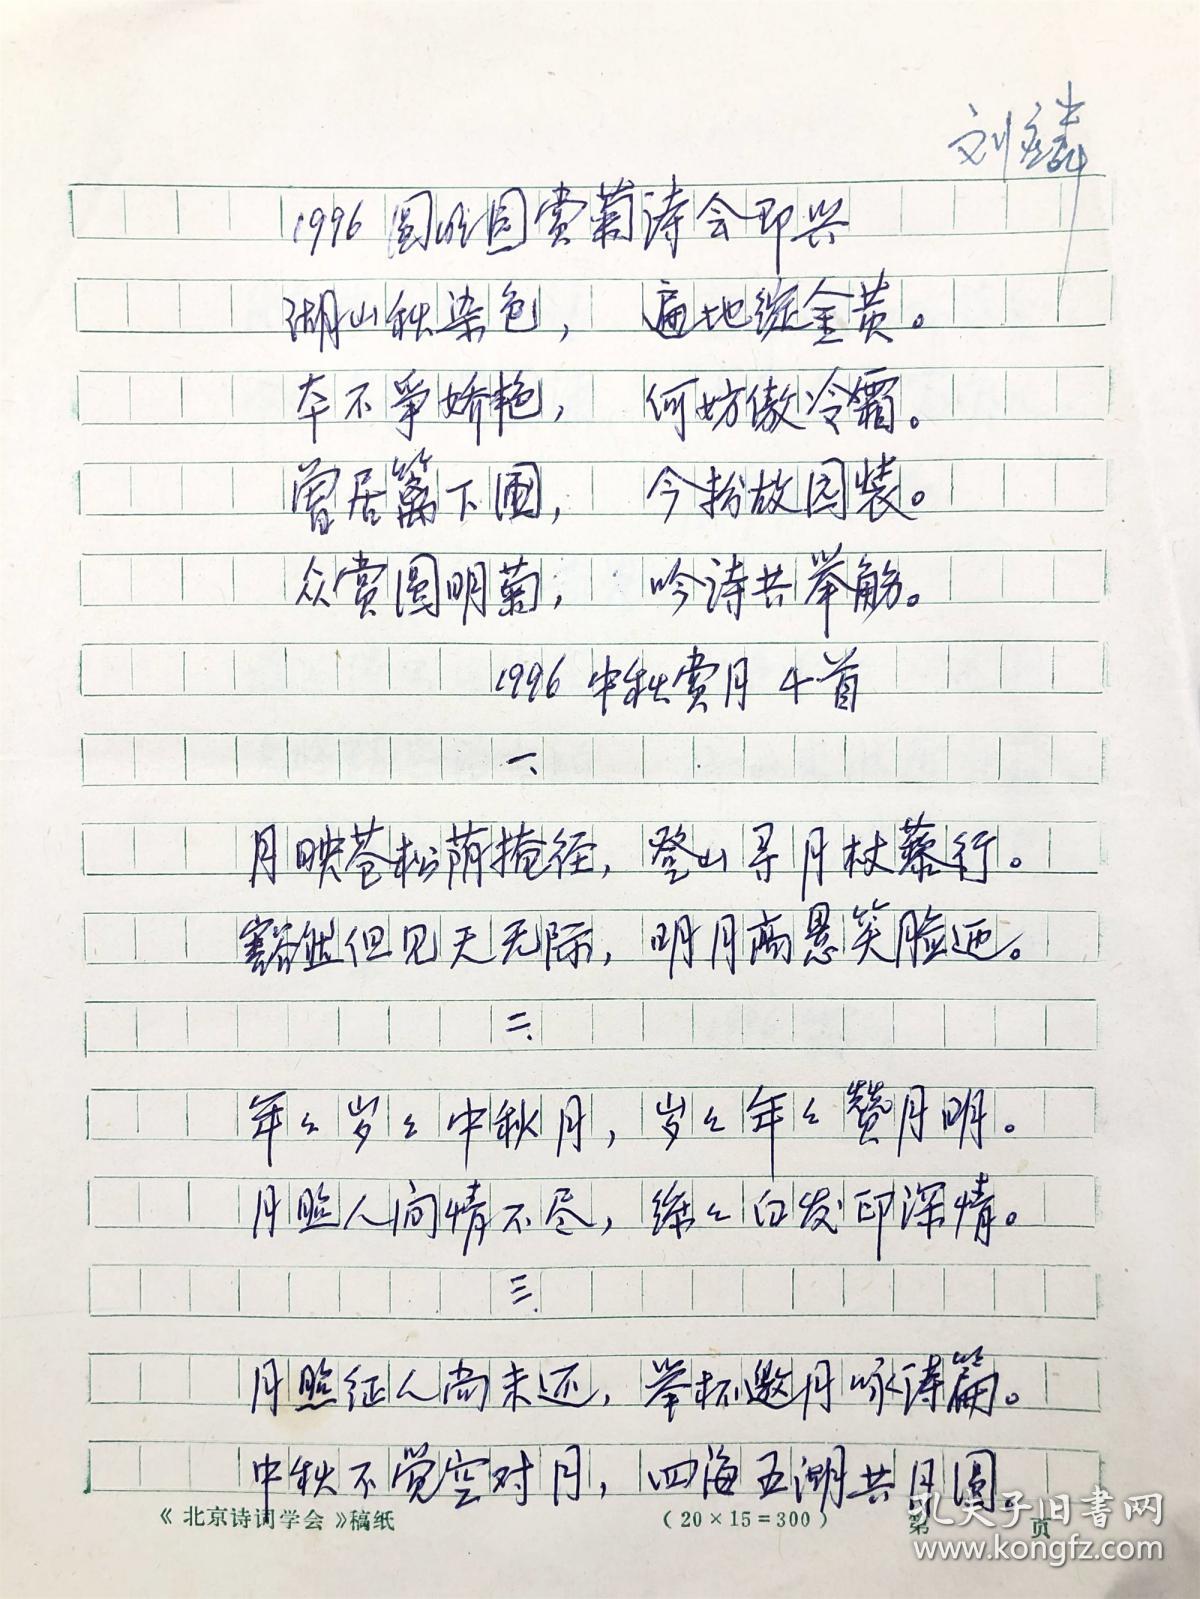 刘麟
1996圆明园赏菊诗会即兴
湖山秋染色， 遍地绽金黄。
本不争娇艳， 何妨傲冷霜。
曾居篱下圃， 今扮故园装。
众赏圆明菊， 吟诗共举觞。
1996 中秋赏月 4首
一、
月映苍松荫掩径，登山寻月杖藜行。
豁然但见天无际，明月高悬笑脸迎。
二、
年々岁々中秋月，岁々年々赞月明。
月照人间情不尽，丝々白发印深情。
三、
月照征人尚未还，举杯邀月咏诗篇。
中秋不觉空对月，四海五湖共月圆。
《北京诗词学会》稿纸 （20×15=300） 第 页
孔夫子旧书网
www.kongfz.com